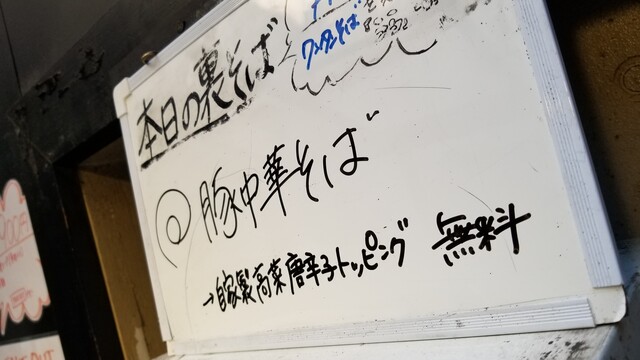 本日の裏そば
ワンタンそば
@豚中華そば
→自家製高菜唐辛子トッピング 無料